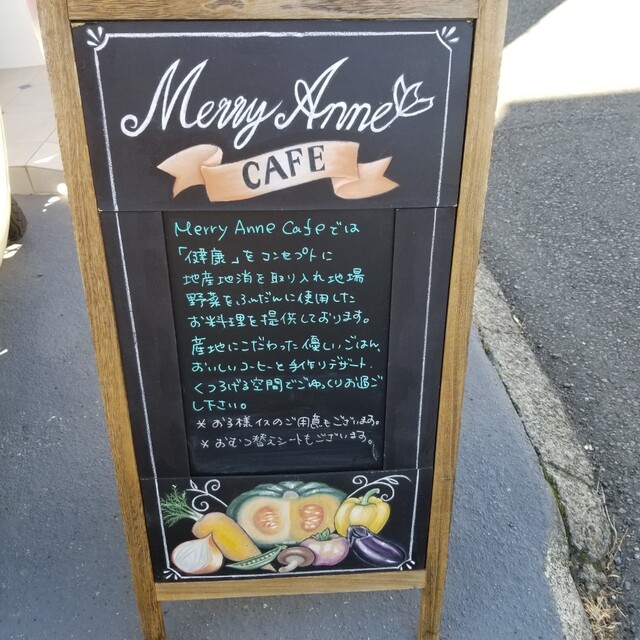 Merry Anne
CAFE
Merry Anne Cafeでは
「健康」をコンセプトに
地産地消を取り入れ地場
野菜をふんだんに使用した
お料理を提供しております。
産地にこだわった優しいごはん、
おいしいコーヒーと手作りデザート。
くつろげる空間でごゆっくりお過ご
し下さい。
※お子様イスのご用意もございます。
※おむつ替えシートもございます。